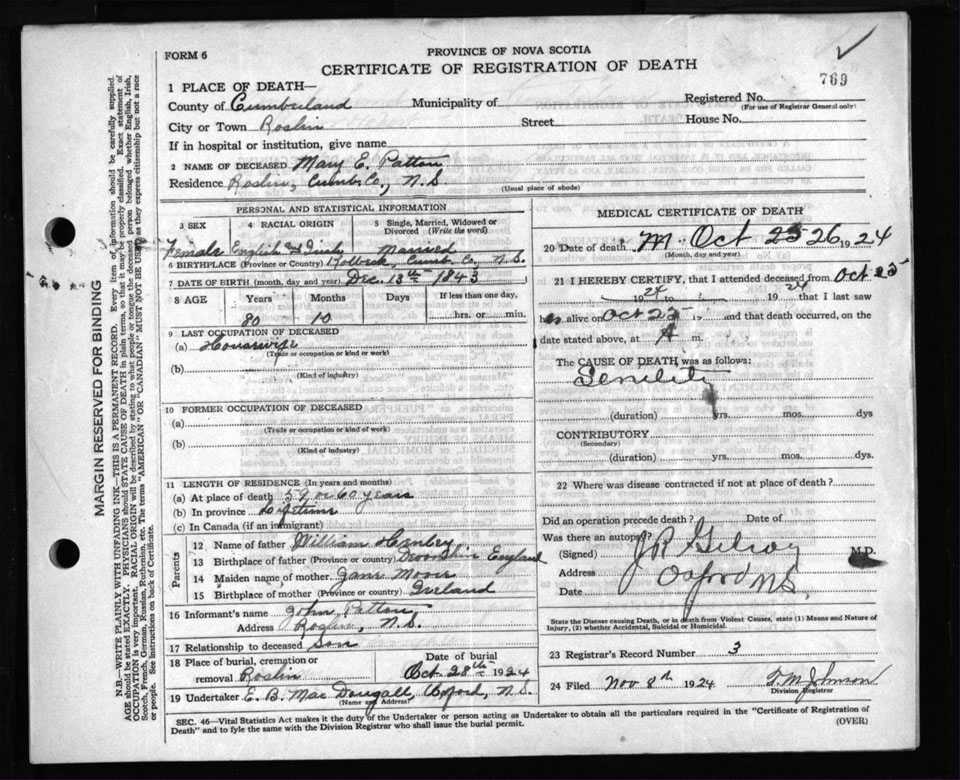 FORM 6
PROVINCE OF NOVA SCOTIA
CERTIFICATE OF REGISTRATION OF DEATH
769
1 PLACE OF DEATH—
County of Cumberland Municipality of Registered No.
(For use of Registrar General only)
City or Town Roslin Street House No.
If in hospital or institution, give name
2 NAME OF DECEASED Mary E. Patton
Residence Roslin, Cumb. Co., N.S.
(Usual place of abode)
PERSONAL AND STATISTICAL INFORMATION
3 SEX 4 RACIAL ORIGIN 5 Single, Married, Widowed or Divorced (Write the word)
Female English and Irish Married
6 BIRTHPLACE (Province or Country) Cumb. Co., N.S.
7 DATE OF BIRTH (month, day and year) Dec. 13th 1843
8 AGE Years Months Days If less than one day,
80 10 hrs. or min.
9 LAST OCCUPATION OF DECEASED
(a) Housewife
(Trade or occupation or kind or work)
(b)
(Kind of industry)
10 FORMER OCCUPATION OF DECEASED
(a)
(Trade or occupation or kind of work)
(b)
(Kind of industry)
11 LENGTH OF RESIDENCE (In years and months)
(a) At place of death 59 or 60 years
(b) In province Lifetime
(c) In Canada (if an immigrant)
Parents
12 Name of father William Henley
13 Birthplace of father (Province or Country) Devonshire England
14 Maiden name of mother Jane Moore
15 Birthplace of mother (Province or Country) Ireland
16 Informant's name John Patton
Address Roslin, N.S.
17 Relationship to deceased Son
18 Place of burial, cremation or removal Roslin Date of burial Oct. 28th 1924
19 Undertaker E. B. MacDougall, Oxford, N.S.
(Name and Address)
MEDICAL CERTIFICATE OF DEATH
20 Date of death Oct 25 26 1924
(Month, day and year)
21 I HEREBY CERTIFY, that I attended deceased from Oct 25
1924 to 1924 that I last saw
h alive on Oct 25 and that death occurred, on
date stated above, at A m.
The CAUSE OF DEATH was as follows:
Senility
(duration) yrs. mos. dys
CONTRIBUTORY
(Secondary)
(duration) yrs. mos. dys.
22 Where was disease contracted if not at place of death?
Did an operation precede death? Date of
Was there an autopsy?
(Signed) J R Gilroy M.D.
Address Oxford N.S.
State the Disease causing Death, or in death from Violent Causes, state (1) Means and Nature of Injury, (2) whether Accidental, Suicidal or Homicidal.
23 Registrar's Record Number 3
24 Filed Nov 8th 1924 T. M. Johnson
Division Registrar
SEC. 46—Vital Statistics Act makes it the duty of the Undertaker or person acting as Undertaker to obtain all the particulars required in the "Certificate of Registration of
Death" and to fyle the same with the Division Registrar who shall issue the burial permit. (OVER)
MARGIN RESERVED FOR BINDING
N.B.—WRITE PLAINLY WITH UNFADING INK—THIS IS A PERMANENT RECORD. Every item of information should be carefully supplied.
AGE should be stated EXACTLY. PHYSICIANS should STATE CAUSE OF DEATH in plain terms, so that it may be properly classified. Exact statement of
OCCUPATION is very important. RACIAL ORIGIN will be described by stating to what people or tongue the deceased person belonged whether English, Irish,
Scotch, French, German, Russian, Ruthenian, etc. The terms "AMERICAN" OR "CANADIAN" MUST NOT BE USED as they express citizenship but not a race
or people. See instructions on back of Certificate.